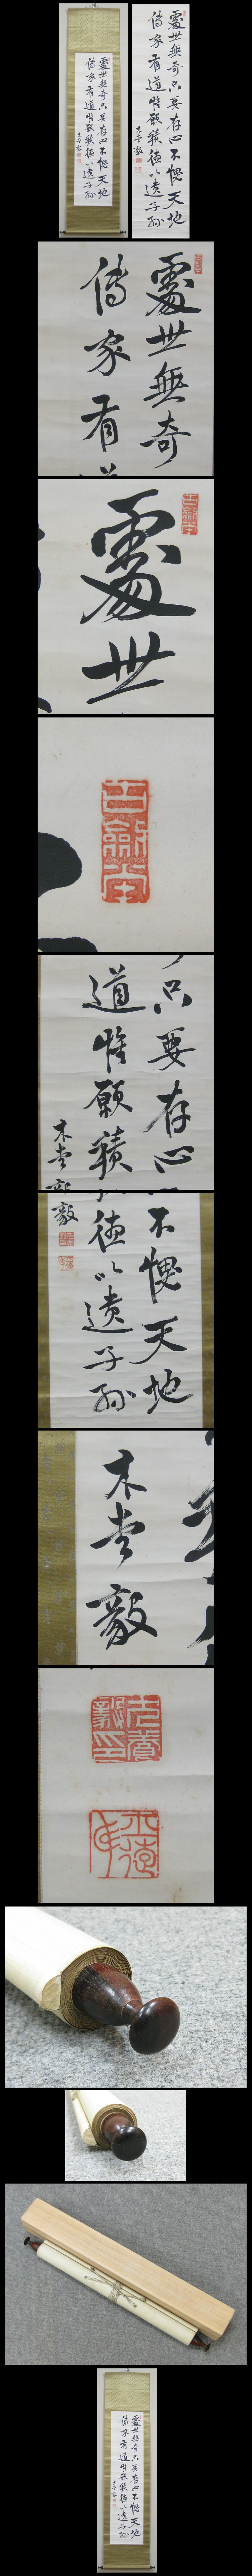 處世無奇只要存心不愧天地
傳家有道惟願積德以遺子孫
木堂毅